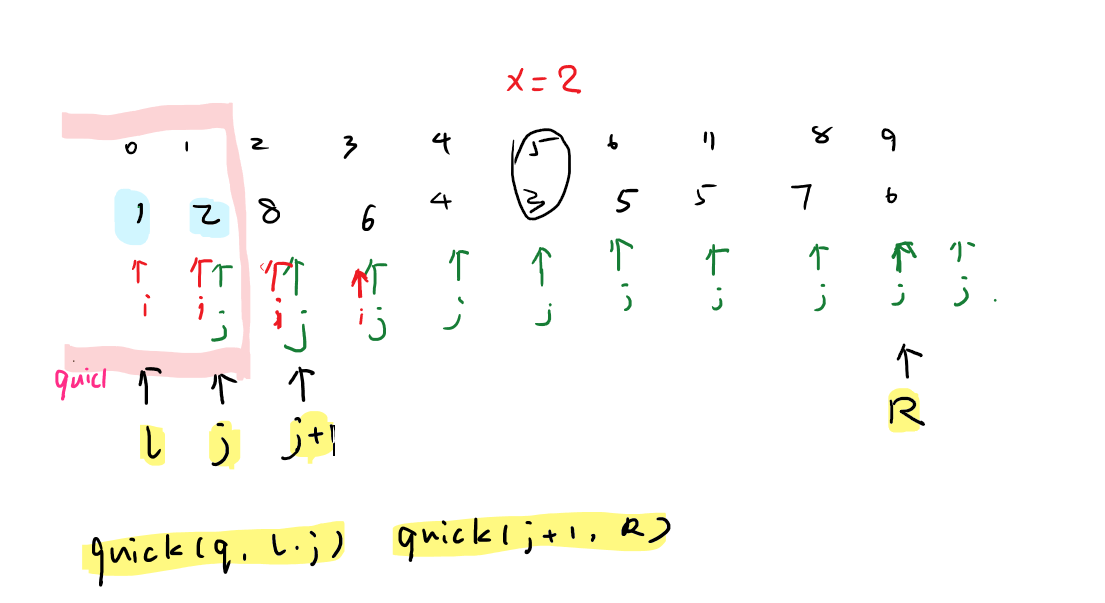 x = 2
0 1 2 3 4 5 6 11 8 9
1 2 8 6 4 3 5 5 7 6
i i j i j i j j j j j j j j .
quicl
l j j+1 R
quick(q, l.j) quick(j+1, R)